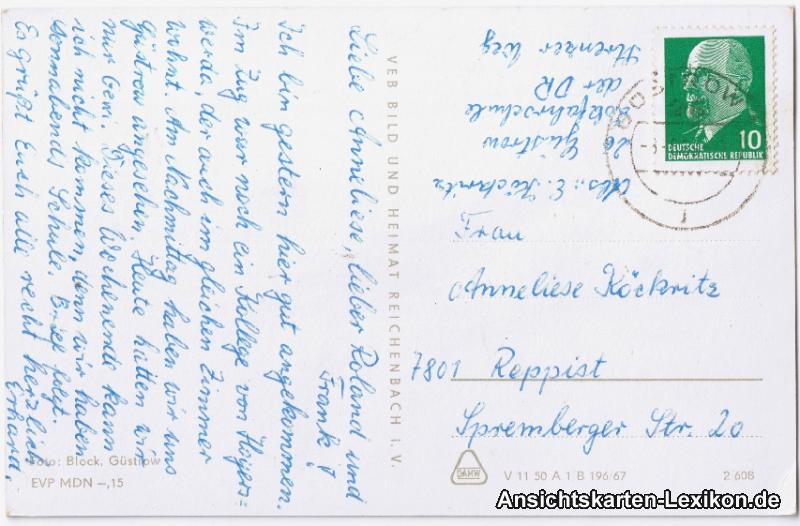 Liebe Anneliese, lieber Roland und
Frank!
Ich bin gestern hier gut angekommen.
Im Zug war noch ein Kollege von Hoyers-
werda, der auch im gleichen Zimmer
wohnt. Am Nachmittag haben wir uns
Güstrow angesehen. Heute hatten wir
nur Gewi. Dieses Wochenende kann
ich nicht kommen, denn wir haben
sonnabends Schule. Brief folgt.
Es grüßt Euch alle recht herzlich
Erhard.
Foto: Block, Güstrow
EVP MDN –,15
VEB BILD UND HEIMAT REICHENBACH i. V.
Abs.: E. Köckritz
26 Güstrow
der DR
Weg
10
DEUTSCHE
DEMOKRATISCHE REPUBLIK
GÜSTROW
Frau
Anneliese Köckritz
7801 Reppist
Spremberger Str. 20
DAMW
V 11 50 A 1 B 196/67
2/608
Ansichtskarten-Lexikon.de